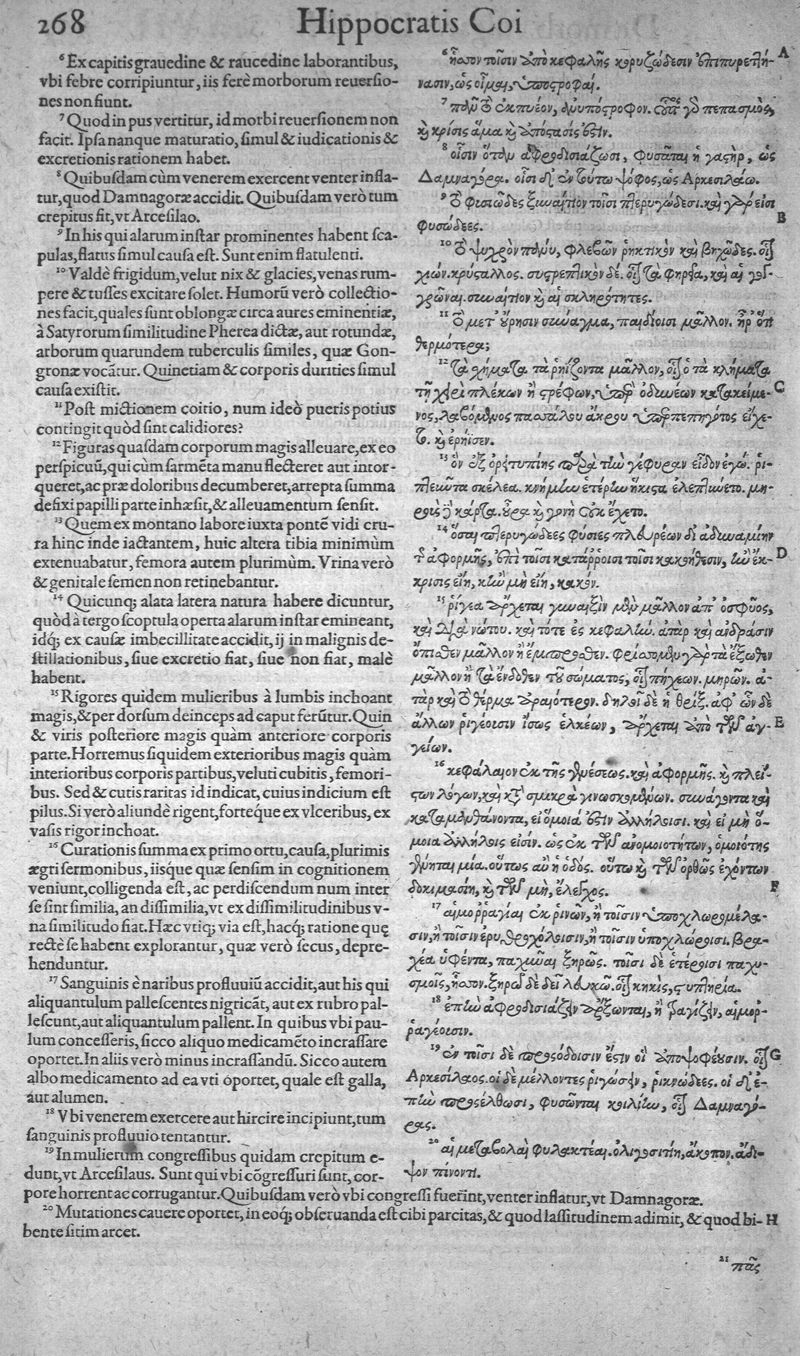 268 Hippocratis Coi
6 Ex capitis grauedine & raucedine laborantibus,
vbi febre corripiuntur, iis ferè morborum reuersio-
nes non fiunt.
7 Quod in pus vertitur, id morbi reuersionem non
facit. Ipsa nanque maturatio, simul & iudicationis &
excretionis rationem habet.
8 Quibusdam cùm venerem exercent venter infla-
tur, quod Damnagoræ accidit. Quibusdam verò tum
crepitus fit, vt Arcesilao.
9 In his qui alarum instar prominentes habent sca-
pulas, flatus simul causa est. Sunt enim flatulenti.
10 Valdè frigidum, velut nix & glacies, venas rum-
pere & tusses excitare solet. Humorũ verò collectio-
nes facit, quales sunt oblongæ circa aures eminentiæ,
à Satyrorum similitudine Pherea dictæ, aut rotundæ,
arborum quarundem tuberculis similes, quæ Gon-
gronæ vocãtur. Quinetiam & corporis durities simul
causa existit.
11 Post mictionem coitio, num ideò pueris potius
contingit quòd sint calidiores?
12 Figuras quasdam corporum magis alleuare, ex eo
perspicuũ, qui cùm sarmẽta manu flecteret aut intor-
queret, ac præ doloribus decumberet, arrepta summa
defixi papilli parte inhæsit, & alleuamentum sensit.
13 Quem ex montano labore iuxta pontẽ vidi cru-
ra hinc inde iactantem, huic altera tibia minimùm
extenuabatur, femora autem plurimùm. Vrina verò
& genitale semen non retinebantur.
14 Quicunq; alata latera natura habere dicuntur,
quòd à tergo scoptula operta alarum instar emineant,
idq; ex causæ imbecillitate accidit, ij in malignis de-
stillationibus, siue excretio fiat, siue non fiat, malè
habent.
15 Rigores quidem mulieribus à lumbis inchoant
magis, & per dorsum deinceps ad caput ferũtur. Quin
& viris posteriore magis quàm anteriore corporis
parte. Horremus siquidem exterioribus magis quàm
interioribus corporis partibus, veluti cubitis, femori-
bus. Sed & cutis raritas id indicat, cuius indicium est
pilus. Si verò aliundè rigent, forteque ex vlceribus, ex
vasis rigor inchoat.
16 Curationis summa ex primo ortu, causa, plurimis
ægri sermonibus, iisque quæ sensim in cognitionem
veniunt, colligenda est, ac perdiscendum num inter
se sint similia, an dissimilia, vt ex dissimilitudinibus v-
na similitudo fiat. Hæc vtiq; via est, hacq; ratione quę
rectè se habent explorantur, quæ verò secus, depre-
henduntur.
17 Sanguinis è naribus profluuiũ accidit, aut his qui
aliquantulum pallescentes nigricãt, aut ex rubro pal-
lescunt, aut aliquantulum pallent. In quibus vbi pau-
lum concesseris, sicco aliquo medicamẽto incrassare
oportet. In aliis verò minus incrassandũ. Sicco autem
albo medicamento ad ea vti oportet, quale est galla,
aut alumen.
18 Vbi venerem exercere aut hircire incipiunt, tum
sanguinis profluuio tentantur.
19 In mulierum congressibus quidam crepitum e-
dunt, vt Arcesilaus. Sunt qui vbi cõgressuri sunt, cor-
pore horrent ac corrugantur. Quibusdam verò vbi congressi fuerint, venter inflatur, vt Damnagoræ.
20 Mutationes cauere oportet, in eoq; obseruanda est cibi parcitas, & quod lassitudinem adimit, & quod bi- H
bente sitim arcet.
6 ἧσσον τοῖσιν ἀπὸ κεφαλῆς κορυζώδεσιν ἐπιπυρετή- A
νασιν, ὡς οἶμαι, ὑποστροφαί.
7 ἐκπυέον, ὑπόστροφον. πεπασμὸς,
καὶ κρίσις ἅμα καὶ ἀπόστασίς ἐστιν.
8 οἷσιν ὅταν ἀφροδισιάζωσι, φυσᾶται ἡ γαστὴρ, ὡς
Δαμναγόρᾳ. οἷσι δ' ἐν τούτῳ ψόφος, ὡς Ἀρκεσιλάῳ.
9 τὸ φυσῶδες ξυναίτιον τοῖσι πτερυγώδεσι. καὶ γάρ εἰσι B
φυσώδεες.
10 τὸ ψυχρὸν πάνυ, φλεβῶν ῥηκτικὸν καὶ βηχῶδες. οἷον
χιὼν. κρύσταλλος. συστρεπτικὸν δέ. οἷον τὰ φηρεῖα, καὶ αἱ γογ-
γρῶναι. συναίτιον καὶ αἱ σκληρότητες.
11 τὸ μετ' οὔρησιν παιδίοισι μᾶλλον. ἦρ' ὅτι
θερμότερα;
12 τὰ χήματα τὰ ῥηίζοντα μᾶλλον, οἷον ὁ τὰ κλήματα
τῇ χειρὶ πλέκων ἢ στρέφων, ὑπὲρ ὀδυνέων κατακείμε- C
νος, λαβόμενος πασσάλου ἄκρου ὑπερπεπηγότος εἴχε-
το. καὶ ἐρήϊσεν.
13 ὃν ἐξ ὀρειτυπίης παρὰ τὴν γέφυραν εἶδον ἐγώ. ῥι-
πτεῦντα σκέλεα. κνήμην ἑτέρην ἥκιστα ἐλεπτύνετο. μη-
ροὺς δὲ κάρτα. οὖρα καὶ γονὴ οὐκ ἔχετο.
14 ὅσαι πτερυγώδεες φύσιες πλευρέων δι' ἀδυναμίην
τῆς ἀφορμῆς, ἐπὶ τοῖσι κατάρροισι τοῖσι κακοήθεσιν, ἢν ἔκ- D
κρισις εἴη, κἢν μὴ εἴη, κακόν.
15 ῥίγεα ἄρχεται γυναιξὶν μὲν μᾶλλον ἀπ' ὀσφύος,
καὶ διὰ νώτου. καὶ τότε ἐς κεφαλήν. ἀτὰρ καὶ ἀνδράσιν
ὄπισθεν μᾶλλον ἢ ἔμπροσθεν. φρίσσομεν γὰρ τὰ ἔξωθεν
μᾶλλον ἢ τὰ ἔνδοθεν τοῦ σώματος, οἷον πήχεων. μηρῶν. ἀ-
τὰρ καὶ τὸ δέρμα ἀραιότερον. δηλοῖ δὲ ἡ θρίξ. ἀφ' ὧν δὲ
ἄλλων ῥιγέοισιν ἴσως ἑλκέων, ἄρχεται ἀπὸ τῶν ἀγ- E
γείων.
16 κεφάλαιον ἐκ τῆς γενέσεως. καὶ ἀφορμῆς. καὶ πλεί-
στων λόγων, καὶ κατὰ σμικρὰ γινωσκομένων. συνάγοντα καὶ
καταμανθάνοντα, εἰ ὅμοιά ἐστιν ἀλλήλοισι. καὶ εἰ μὴ ὅ-
μοια ἀλλήλοις εἰσίν. ὡς ἐκ τῶν ἀνομοιοτήτων, ὁμοιότης
γένηται μία. οὕτως ἂν ἡ ὁδός. οὕτω καὶ τῶν ὀρθῶς ἐχόντων
δοκιμασίη, καὶ τῶν μὴ, ἔλεγχος. F
17 αἱμορραγίαι ἐκ ῥινῶν, ἢ τοῖσιν ὑποχλωρομέλα-
σιν, ἢ τοῖσιν ἐρυθροχόλοισιν, ἢ τοῖσιν ὑποχλώροισι. βρα-
χέα ὑφέντα, παχῦναι ξηρῶς. τοῖσι δὲ ἑτέροισι παχυ-
σμοῖς, ἧσσον. ξηρῷ δὲ δεῖ λευκῷ. οἷον κηκὶς, στυπτηρία.
18 ἐπὴν ἀφροδισιάζειν ἄρξωνται, ἢ τραγίζειν, αἱμορ-
ραγέουσιν.
19 ἐν τοῖσι δὲ προσόδοισιν ἔστιν οἳ ἀποψοφέουσιν. οἷον G
Ἀρκεσίλαος. οἱ δὲ μέλλοντες ῥιγώσειν, ῥικνώδεες. οἱ δ' ἐ-
πὴν προσέλθωσι, φυσῶνται κοιλίην, οἷον Δαμναγό-
ρας.
20 αἱ μεταβολαὶ φυλακτέαι. ὀλιγοσιτίη, ἄκοπον. ἄδι-
ψον πίνοντι.
21 πᾶς